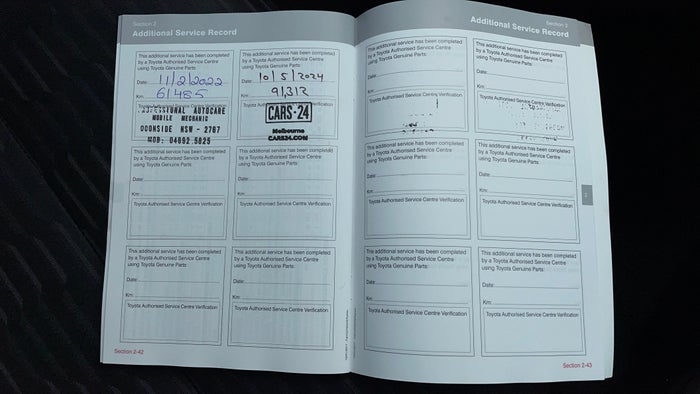 Section 2
Additional Service Record
This additional service has been completed
by a Toyota Authorised Service Centre
using Toyota Genuine Parts:
Date: 11/2/2022
Km: 61485
Toyota Authorised Service Centre Verification
AUTOCARE
MOBILE MECHANIC
NSW - 2767
MOB:
This additional service has been completed
by a Toyota Authorised Service Centre
using Toyota Genuine Parts:
Date: 10/5/2024
Km: 91,312
Toyota Authorised Service Centre Verification
CARS·24
Melbourne
CARS24.COM
This additional service has been completed
by a Toyota Authorised Service Centre
using Toyota Genuine Parts:
Date:
Km:
Toyota Authorised Service Centre Verification
This additional service has been completed
by a Toyota Authorised Service Centre
using Toyota Genuine Parts:
Date:
Km:
Toyota Authorised Service Centre Verification
This additional service has been completed
by a Toyota Authorised Service Centre
using Toyota Genuine Parts:
Date:
Km:
Toyota Authorised Service Centre Verification
This additional service has been completed
by a Toyota Authorised Service Centre
using Toyota Genuine Parts:
Date:
Km:
Toyota Authorised Service Centre Verification
Section 2-42
Section 2
Additional Service Record
This additional service has been completed
by a Toyota Authorised Service Centre
using Toyota Genuine Parts:
Date:
Km:
Toyota Authorised Service Centre Verification
This additional service has been completed
by a Toyota Authorised Service Centre
using Toyota Genuine Parts:
Date:
Km:
Toyota Authorised Service Centre Verification
This additional service has been completed
by a Toyota Authorised Service Centre
using Toyota Genuine Parts:
Date:
Km:
Toyota Authorised Service Centre Verification
This additional service has been completed
by a Toyota Authorised Service Centre
using Toyota Genuine Parts:
Date:
Km:
Toyota Authorised Service Centre Verification
2
This additional service has been completed
by a Toyota Authorised Service Centre
using Toyota Genuine Parts:
Date:
Km:
Toyota Authorised Service Centre Verification
This additional service has been completed
by a Toyota Authorised Service Centre
using Toyota Genuine Parts:
Date:
Km:
Toyota Authorised Service Centre Verification
Section 2-43